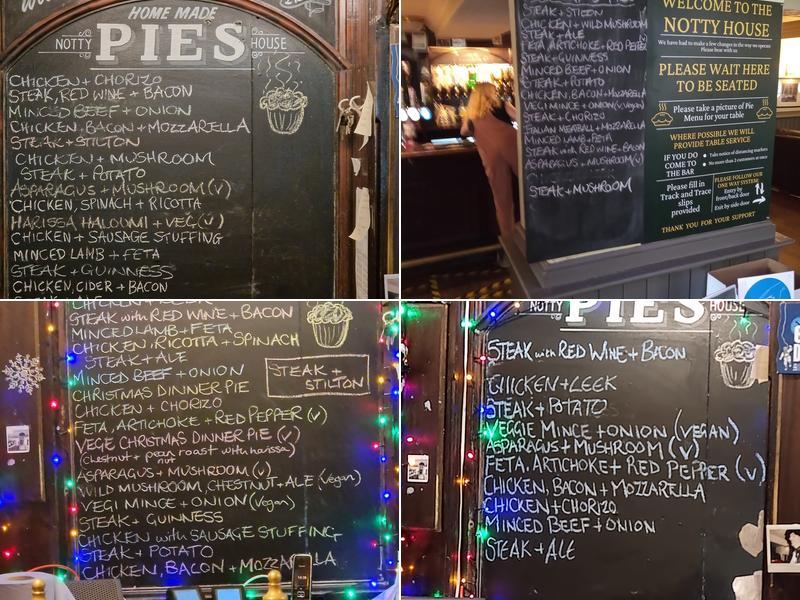 HOME MADE
NOTTY PIES HOUSE
CHICKEN + CHORIZO
STEAK, RED WINE + BACON
MINCED BEEF + ONION
CHICKEN, BACON + MOZZARELLA
STEAK + STILTON
CHICKEN + MUSHROOM
STEAK + POTATO
ASPARAGUS + MUSHROOM (V)
CHICKEN, SPINACH + RICOTTA
HARISSA HALOUMI + VEG (V)
CHICKEN + SAUSAGE STUFFING
MINCED LAMB + FETA
STEAK + GUINNESS
CHICKEN, CIDER + BACON
STEAK + STILTON
CHICKEN + WILD MUSHROOM
STEAK + ALE
FETA ARTICHOKE + RED PEPPER
STEAK + GUINNESS
MINCED BEEF + ONION
STEAK + POTATO
CHICKEN, BACON + MOZZARELLA
VEGI MINCE + ONION (Vegan)
STEAK + CHORIZO
ITALIAN MEATBALL + MOZZARELLA
MINCED LAMB + FETA
STEAK with RED WINE + BACON
ASPARAGUS + MUSHROOM (V)
STEAK + MUSHROOM
WELCOME TO THE
NOTTY HOUSE
We have had to make a few changes in the way we operate
Please bear with us
PLEASE WAIT HERE
TO BE SEATED
Please take a picture of Pie
Menu for your table
WHERE POSSIBLE WE WILL
PROVIDE TABLE SERVICE
IF YOU DO
COME TO
THE BAR
Take notice of distancing markers
No more than 2 customers at once
Please fill in
Track and Trace
slips
provided
PLEASE FOLLOW OUR
ONE WAY SYSTEM
Entry by
front/back door
Exit by side door
THANK YOU FOR YOUR SUPPORT
STEAK with RED WINE + BACON
MINCED LAMB + FETA
CHICKEN, RICOTTA + SPINACH
STEAK + ALE
MINCED BEEF + ONION
CHRISTMAS DINNER PIE
CHICKEN + CHORIZO
FETA, ARTICHOKE + RED PEPPER (V)
VEGIE CHRISTMAS DINNER PIE (V)
(chestnut + pean roast with harissa)
nut
ASPARAGUS + MUSHROOM (V)
WILD MUSHROOM, CHESTNUT + ALE (Vegan)
VEGI MINCE + ONION (Vegan)
STEAK + GUINNESS
CHICKEN with SAUSAGE STUFFING
STEAK + POTATO
CHICKEN, BACON + MOZZARELLA
STEAK +
STILTON
NOTTY PIES HOUSE
STEAK with RED WINE + BACON
CHICKEN + LEEK
STEAK + POTATO
VEGGIE MINCE + ONION (VEGAN)
ASPARAGUS + MUSHROOM (V)
FETA, ARTICHOKE + RED PEPPER (V)
CHICKEN, BACON + MOZZARELLA
CHICKEN + CHORIZO
MINCED BEEF + ONION
STEAK + ALE